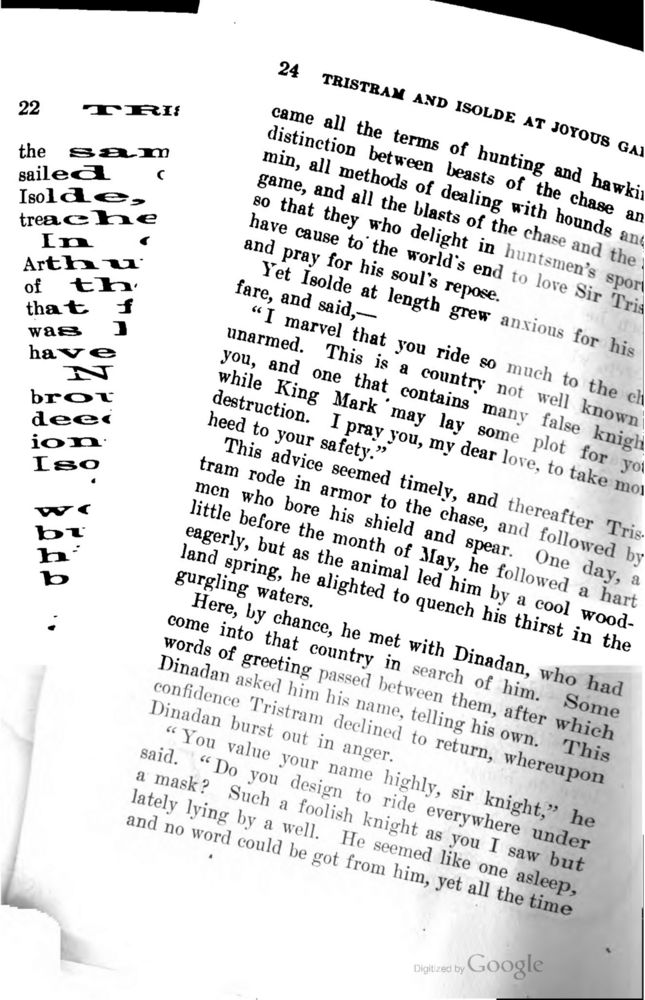 22 TRIS
the sam
sailed
Isolde,
treache
In
Arthu
of th
that f
was
have
N
brou
deed
ion
Iso
b
24 TRISTRAM AND ISOLDE AT JOYOUS GA
came all the terms of hunting and hawki
distinction between beasts of the chase an
min, all methods of dealing with hounds and
game, and all the blasts of the chase and the
so that they who delight in huntsmen's sport
have cause to the world's end to love Sir Tris
and pray for his soul's repose.
Yet Isolde at length grew anxious for his
fare, and said,—
“I marvel that you ride so much to the ch
unarmed. This is a country not well known
you, and one that contains many false knigh
while King Mark may lay some plot for yo
destruction. I pray you, my dear love, to take mo
heed to your safety.”
This advice seemed timely, and thereafter Tris-
tram rode in armor to the chase, and followed by
men who bore his shield and spear. One day, a
little before the month of May, he followed a hart
eagerly, but as the animal led him by a cool wood-
land spring, he alighted to quench his thirst in the
gurgling waters.
Here, by chance, he met with Dinadan, who had
come into that country in search of him. Some
words of greeting passed between them, after which
Dinadan asked him his name, telling his own. This
confidence Tristram declined to return, whereupon
Dinadan burst out in anger.
“You value your name highly, sir knight,” he
said. “Do you design to ride everywhere under
a mask? Such a foolish knight as you I saw but
lately lying by a well. He seemed like one asleep,
and no word could be got from him, yet all the time
Digitized by Google